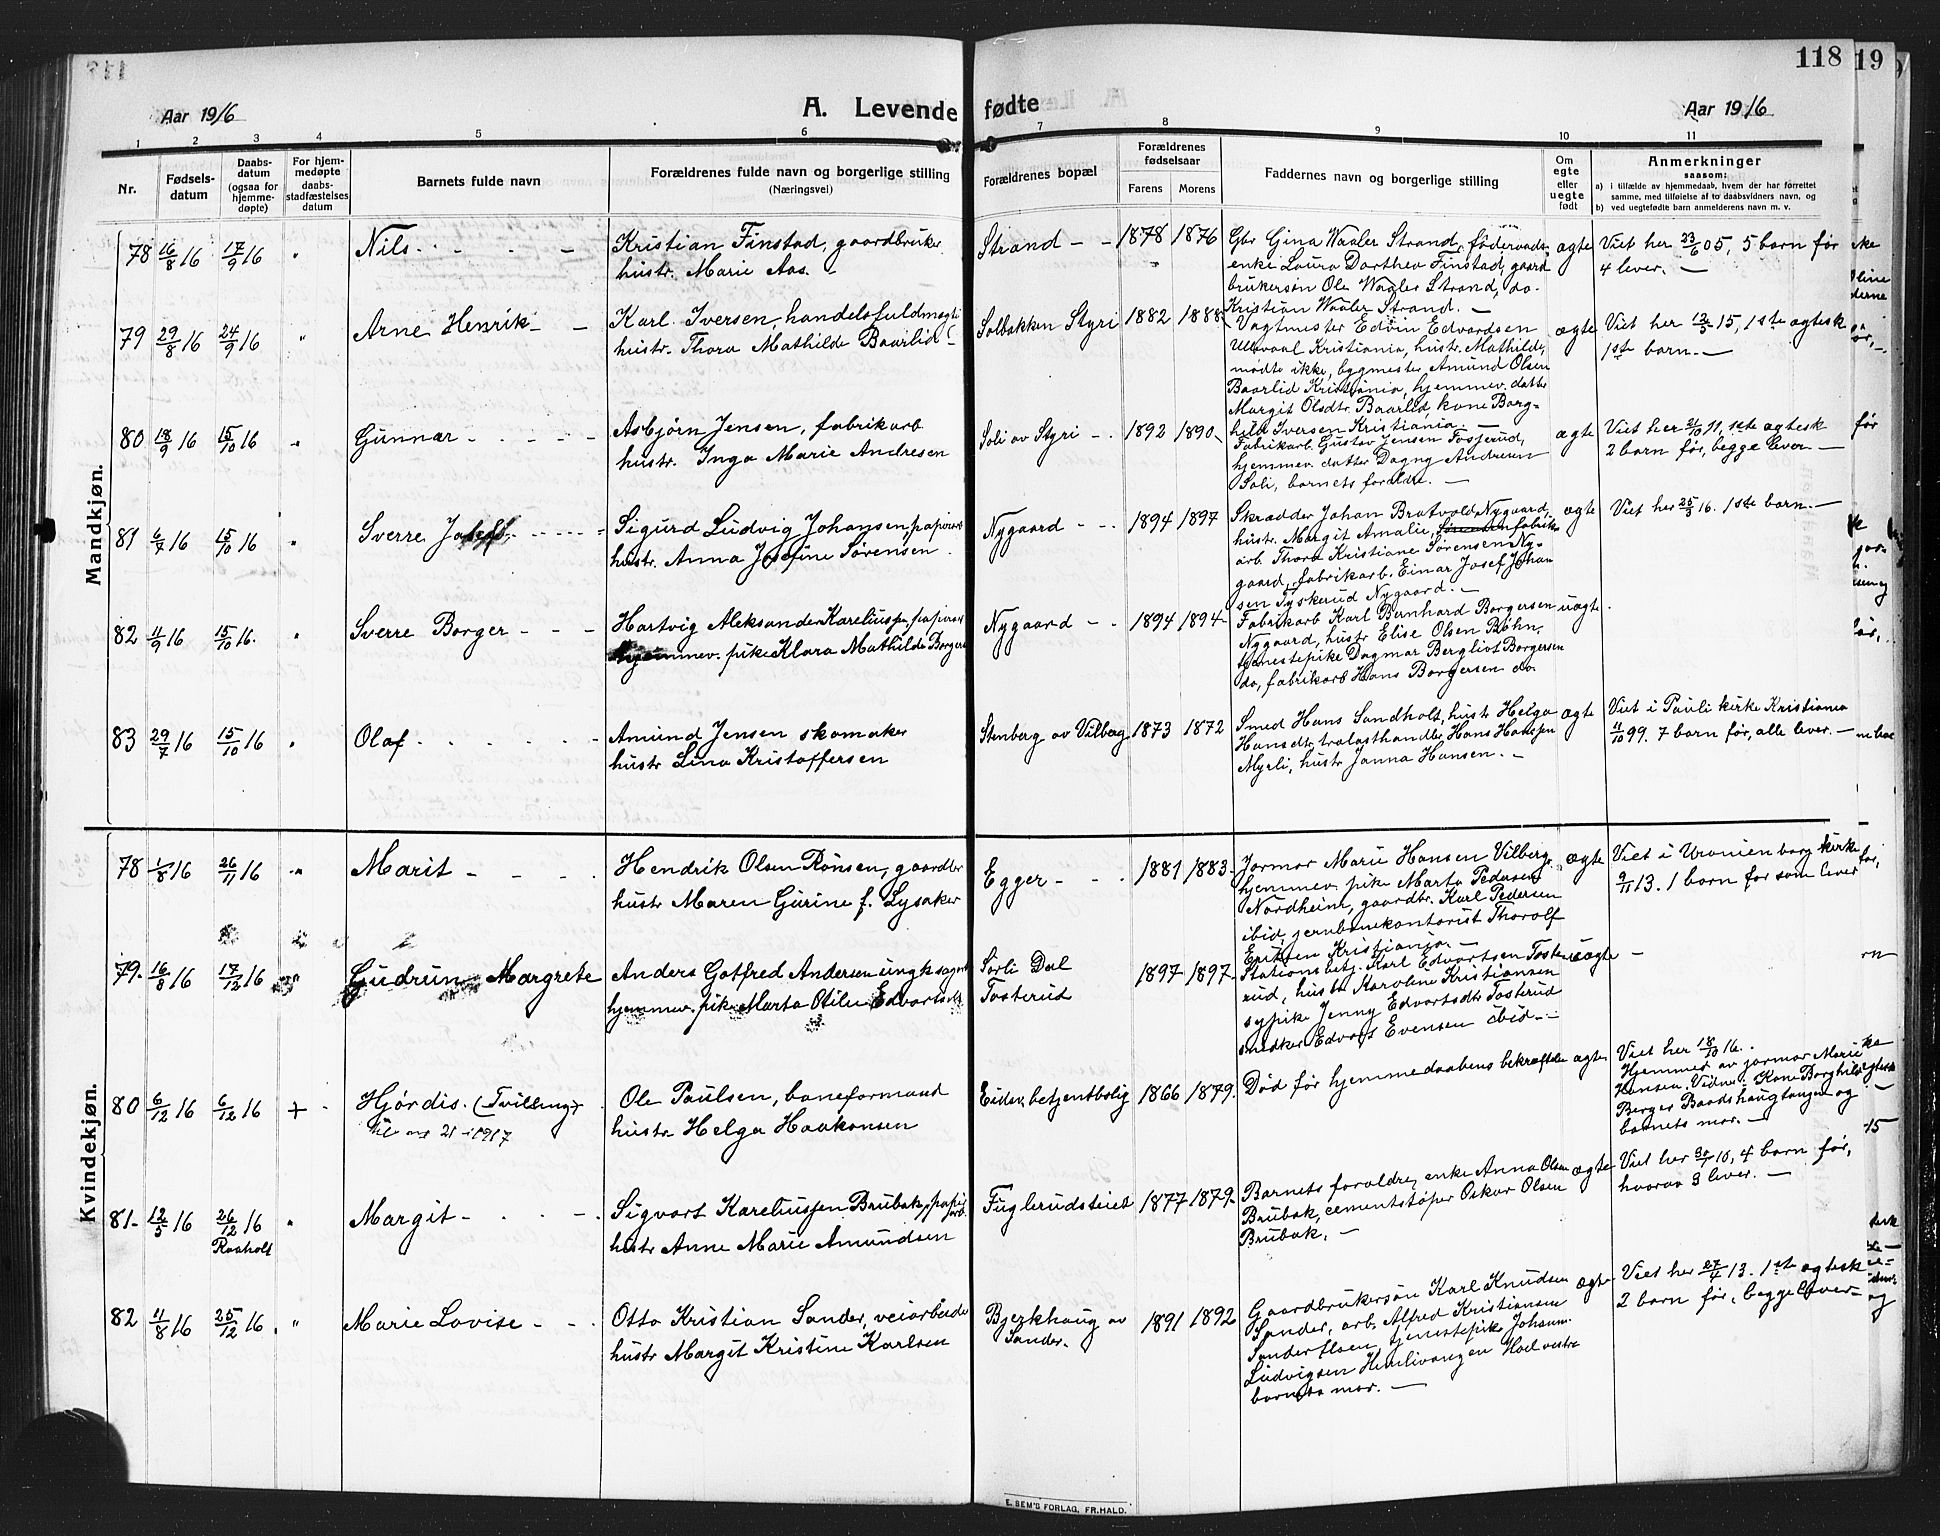 118
19
Aar 1916
A. Levende fødte
Aar 1916
1 2 3 4 5 6 7 8 9 10 11
Nr.
Fødsels-
datum
Daabs-
datum
(ogsaa for
hjemme-
døpte)
For hjem-
medøpte
daabs-
stadfæstelses
datum
Barnets fulde navn
Forældrenes fulde navn og borgerlige stilling
(Næringsvei)
Forældrenes bopæl
Forældrenes
fødselsaar
Farens Morens
Faddernes navn og borgerlige stilling
Om
egte
eller
uegte
født
Anmerkninger
saasom:
a) i tilfælde av hjemmedaab, hvem der har forrettet
samme, med tilføielse af to daabsvidners navn, og
b) ved uegtefødte barn anmelderens navn m. v.
Mandkjøn.
78 16/8 16 17/9 16 " Nils - - -
Kristian Finstad, gaardbruker
hustr. Marie Aas.
Strand - - 1878 1876
Gbr Gina Waaler Strand, føderaads-
enke Laura Dorthea Finstad, gaard
brukersøn Ole Waaler Strand, do.
Kristian Waaler Strand. -
ægte
Viet her 23/6 05, 5 barn før
4 lever. -
79 29/8 16 24/9 16 " Arne Henrik - -
Karl Iversen, handelsfuldmægt
hustr. Thora Mathilde Baarlid
Solbakken Styri 1882 1888
Vagtmester Edvin Edvardsen
Ullevaal Kristiania, hustr. Mathilde,
mødte ikke, bygmester Amund Olsen
Baarlid Kristiania, hjemmev. datter
Margit Olsdtr. Baarlid, kone Borg-
hild Iversen Kristiania -
ægte
Viet her 12/3 15, 1ste ægtesk
1ste barn. -
80 18/9 16 15/10 16 " Gunnar - - - -
Asbjørn Jensen, fabrikarb
hustr. Inga Marie Andresen
Soli av Styri - - 1892 1890
Fabrikarb. Gustav Jensen Fosserud,
hjemmev. datter Dagny Andresen
Soli, barnets forældre. -
ægte
Viet her 21/10 11, 1ste ægtesk
2 barn før, begge lever -
81 6/7 16 15/10 16 " Sverre - - - -
Sigurd Ludvig Johansen, papirarb
hustr. Anna Josefine Sørensen
Nygaard - - 1894 1897
Skrædder Johan Bratvold Nygaard,
hustr. Margit Amalie, Sørensen fabrik
arb. Thora Kristiane Sørensen Ny-
gaard, fabrikarb. Einar Josef Johan
sen Tyskerud Nygaard. -
ægte
Viet her 25/3 16. 1ste barn. -
82 11/9 16 15/10 16. " Sverre Borger - - -
Hartvig Aleksander Kareliussen, papirarb
hjemmev. pike Klara Mathilde Borgers
Nygaard - - 1894 1894
Fabrikarb Karl Bernhard Borgersen
Nygaard, hustr Elise Olsen Bøhn,
tjenestepike Dagmar Bergliot Borgersen
do, fabrikarb Hans Borgersen do.
uægte.
83 29/7 16 15/10 16 " Olaf - - - -
Amund Jensen skomaker
hustr Lina Kristoffersen
Stenberg av Vilberg 1873 1872
Smed Hans Sandholt, hustr Helga
Hansdtr, trælasthandler Hans Hansen
Myrli, hustr Janna Hansen. -
ægte
Viet i Pauli kirke Kristiania
11/10 99. 7 barn før, alle lever. -
Kvindekjøn.
78 1/8 16 26/11 16 " Marit - - - -
Hendrik Olsen Rønsen, gaardbr
hustr Maren Gurine f. Lysaker
Egger - - 1881 1883
Jormor Marie Hansen Vilberg
hjemmev. pike Marta Pedersen
Nordheim, gaardbr. Karl Pedersen
ibid, jernbanekontorist Thorolf
Eriksen Kristiania. -
ægte
Viet i Uranienborg kirke
9/11 13. 1 barn før som lever
79- 16/8 16 17/12 16 " Gudrun Margrete
Anders Gotfred Andersen ungk
hjemmev. pike Marta Otilie Edvarts
Sørli Dal
Tosterud
1897 1897
Stationsbetj. Karl Edvartsen Toste
rud, hustr Karoline Kristiansen
sypike Jenny Edvartsdtr Tosterud
snedker Edvart Evensen ibid -
uægte -
80 6/12 16 6/12 16 + Hjørdis. (Tvilling)
1917
Ole Paulsen, baneformand
hustr Helga Haakonsen
Eidsv. betjentbolig 1866 1879.
Død før hjemmedaabens bekræftelse ægte
Viet her 18/10 16.
Hjemmed av jormor Marie
Hansen. Vidne: Kone Borghild
Berger Baadshaugtangen og
barnets mor. -
81- 12/5 16 26/12 16 " Margit - - -
Raaholt
Sigvart Kareliussen Brubak, papirarb.
hustr Anne Marie Amundsen
Fuglerudsteiet 1877 1879
Barnets forældre, enke Anna Olsen
Brubak, cementstøper Oskar Olsen
Brubak. -
ægte
Viet her 30/7 10, 4 barn før,
hvorav 3 lever. -
82 11/8 16 25/12 16. " Marie Lovise - - -
Otto Kristian Sander, veiarbeider
hustr Margit Kristine Karlsen
Bjerkhaug av
Sander.
1891 1892
Gaardbrukersøn Karl Knudsen
Sander, arb. Alfred Kristiansen
Sanderflsen, tjenestepike Johanne
Ludvigsen Henlivangen Hoel vestre
barnets mor. -
ægte
Viet her 27/4 13. 1ste ægtesk
2 barn før, begge lever -
E. SEM'S FORLAG, FR.HALD.